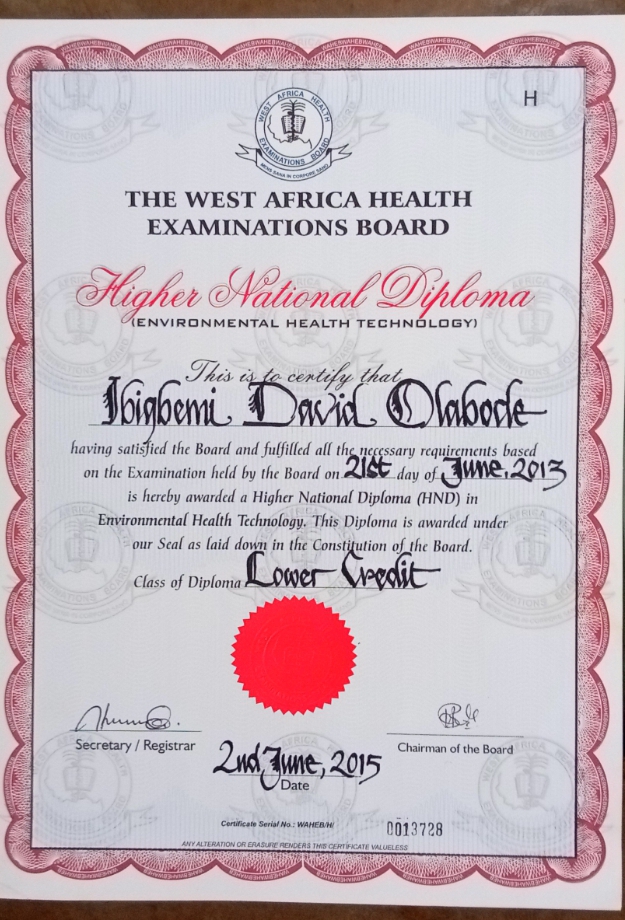 H
WEST AFRICA HEALTH
EXAMINATIONS BOARD
MENS SANA IN CORPORE SANO
THE WEST AFRICA HEALTH
EXAMINATIONS BOARD
Higher National Diploma
(ENVIRONMENTAL HEALTH TECHNOLOGY)
This is to certify that
Ibigbemi David Olabode
having satisfied the Board and fulfilled all the necessary requirements based
on the Examination held by the Board on 21st day of June, 2013
is hereby awarded a Higher National Diploma (HND) in
Environmental Health Technology. This Diploma is awarded under
our Seal as laid down in the Constitution of the Board.
Class of Diploma Lower Credit
Secretary / Registrar
Chairman of the Board
2nd June, 2015
Date
Certificate Serial No.: WAHEB/H/ 0013728
ANY ALTERATION OR ERASURE RENDERS THIS CERTIFICATE VALUELESS